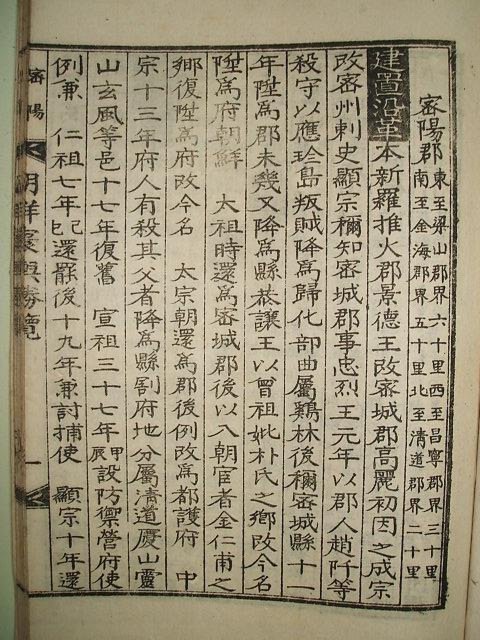 密陽郡東至梁山郡界六十里西至昌寧郡界三十里
南至金海郡界五十里北至清道郡界二十里
建置沿革本新羅推火郡景德王改密城郡高麗初因之成宗
改密州刺史顯宗稱知密城郡事忠烈王元年以郡人趙阡等
殺守以應珍島叛賊降爲歸化部曲屬鷄林後稱密城縣十一
年陞爲郡未幾又降爲縣恭讓王以曾祖妣朴氏之鄉改今名
陞爲府朝鮮 太祖時還爲密城郡後以入朝宦者金仁甫之
鄉復陞爲府改今名 太宗朝還爲郡後例改爲都護府 中
宗十三年府人有殺其父者降爲縣割府地分屬清道慶山靈
山玄風等邑十七年復舊 宣祖三十七年甲辰設防禦營府使
例兼 仁祖七年己巳還罷後十九年兼討捕使 顯宗十年還
密陽
朝鮮寰輿勝覽
一